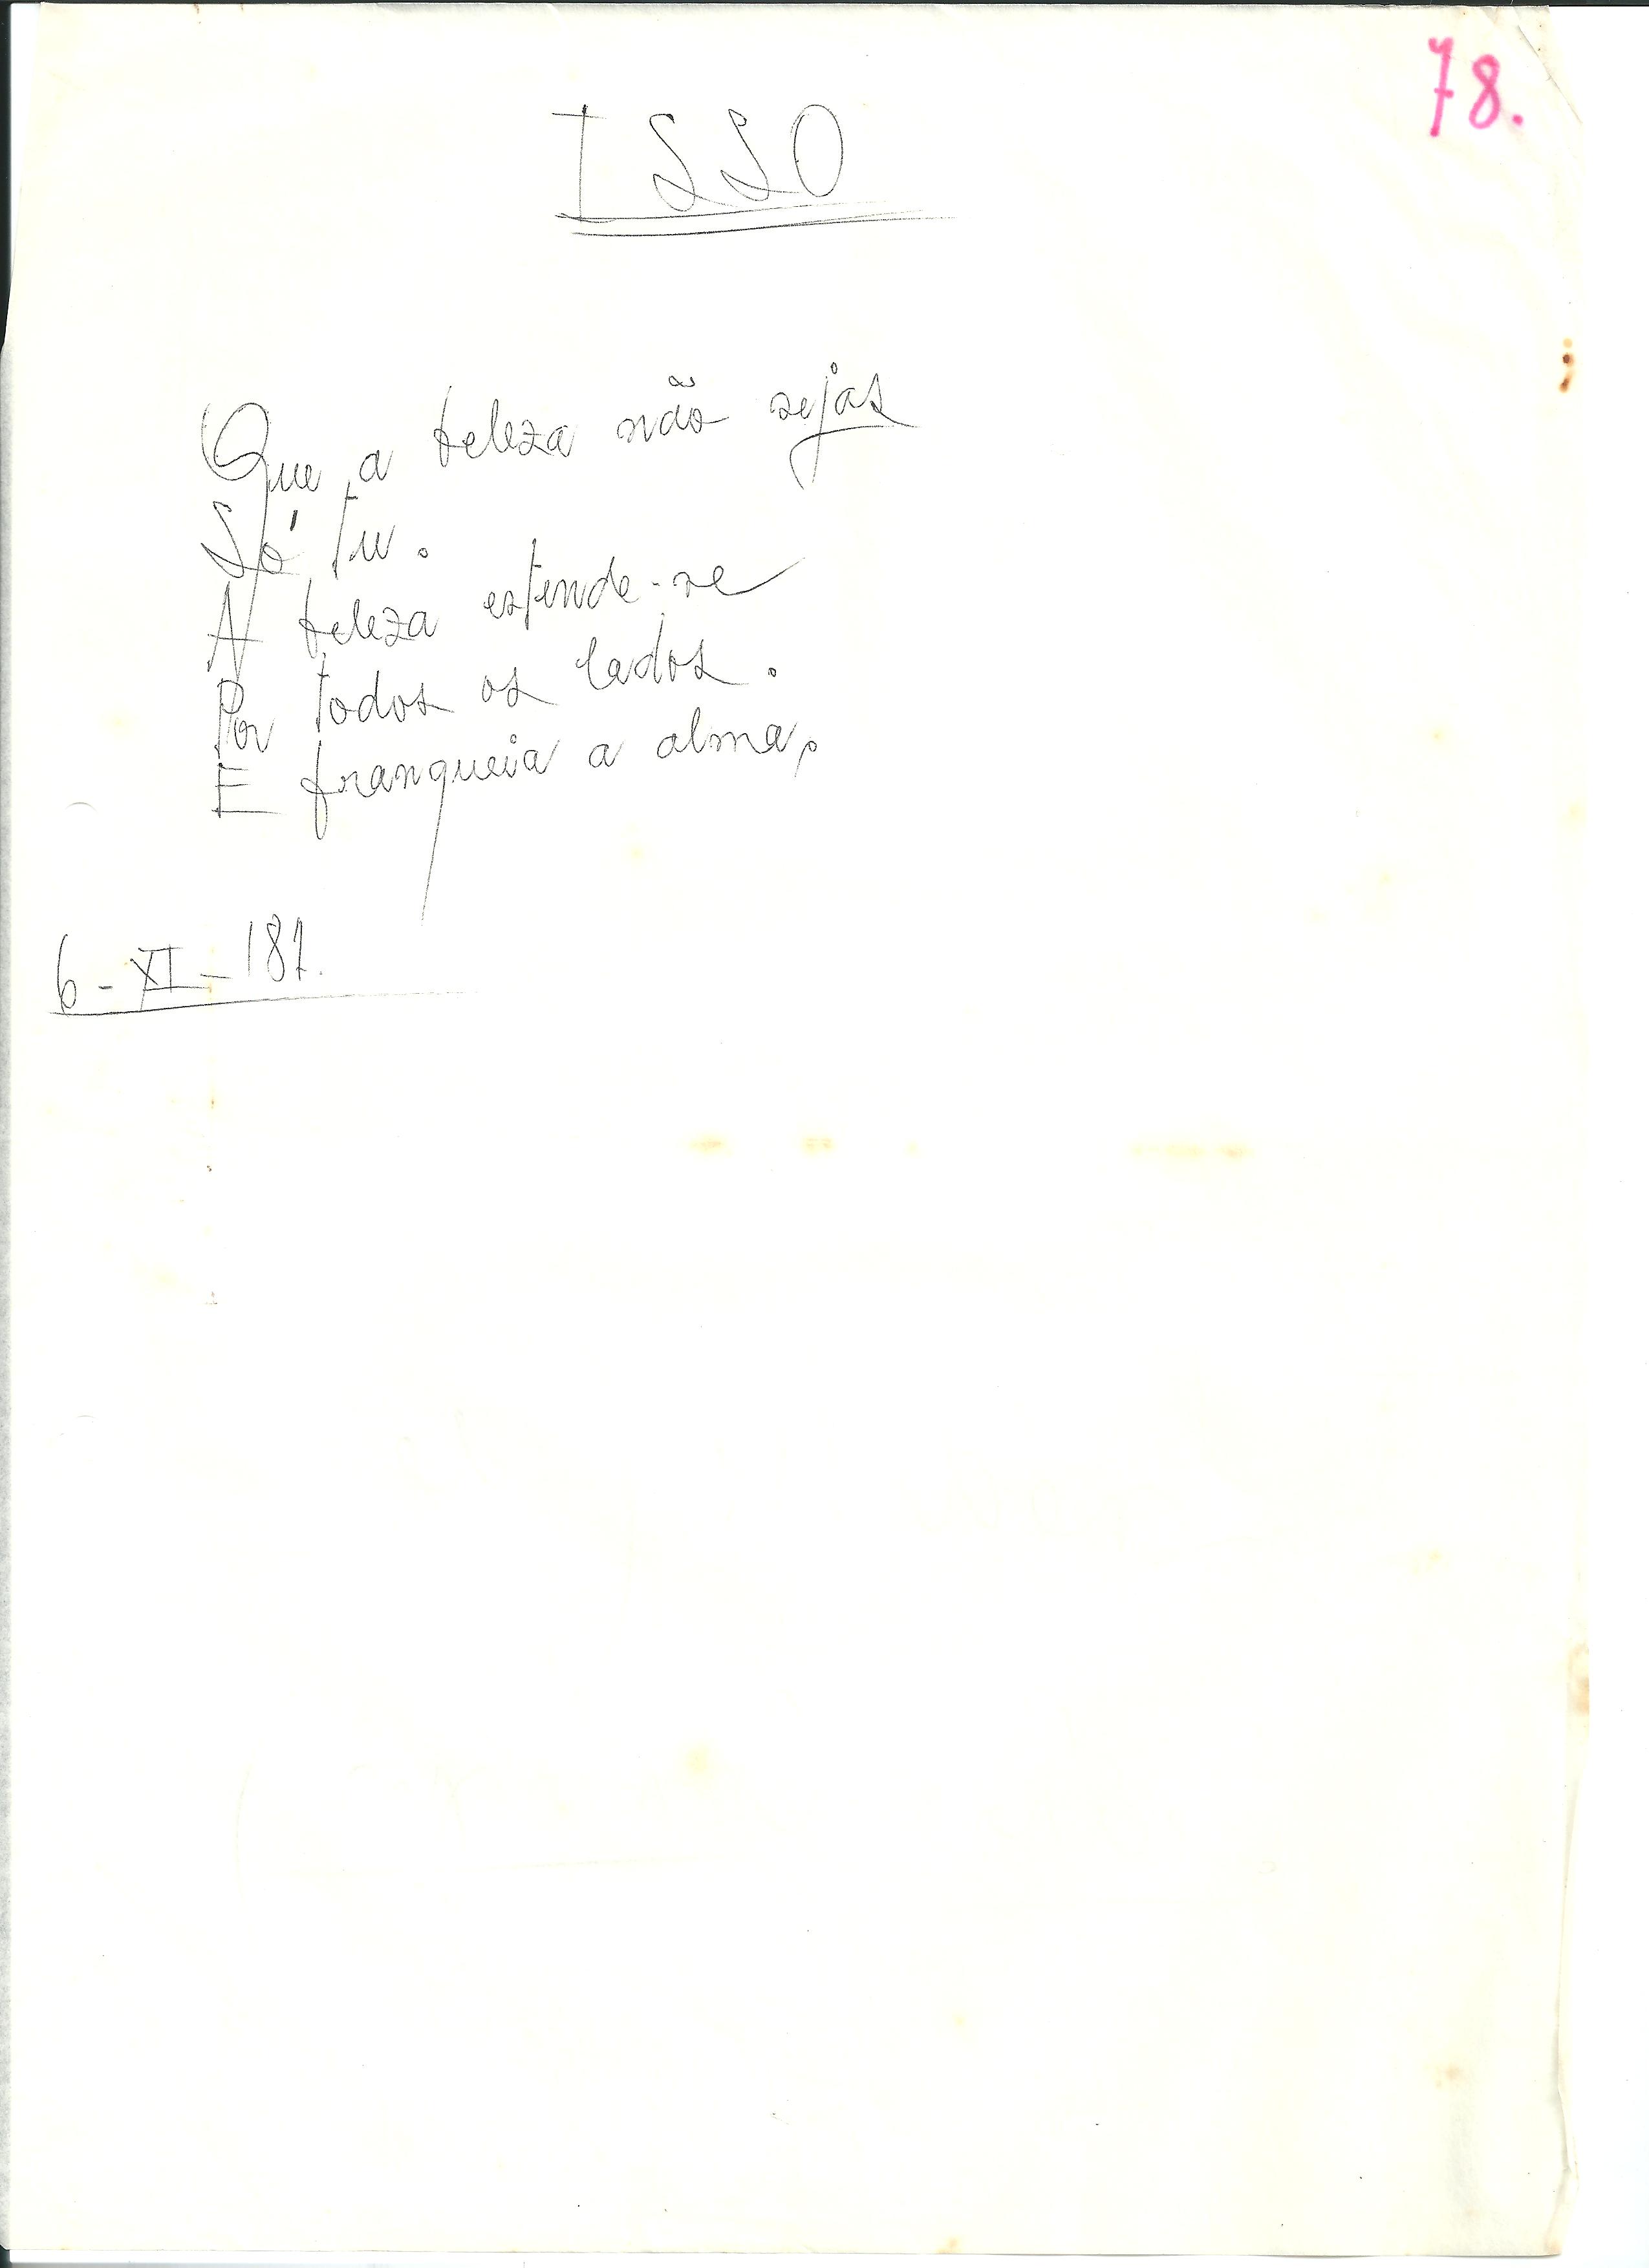 78.
ISSO
Que a beleza não sejas
Só tu.
A beleza estende-se
Por todos os lados.
E franqueia a alma,
6-XI-187.